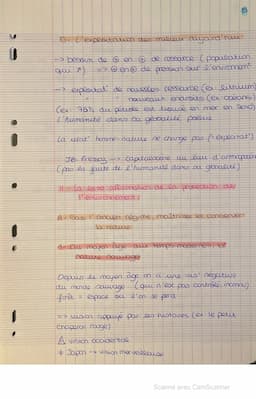 D- L'exploitation des milieux aujourd'hui
→ besoin de ⊕ en ⊕ de ressource (population
qui ↗) => ⊕ en ⊕ de pression sur l'environnt
→ exploitat° de nouvelles ressource (ex lithium)
" nouveaux endroits (ex océans)
(ex 75% du pétrole est trouvé en mer en 2020)
L'humanité dans sa globalité
La relat° homme-nature ne change pas (l'exploitat°)
JB → capitalocène au lieu d'anthropocène
(pas la faute de l'humanité dans sa globalité)
II - La lente affirmation de la protection de
l'environnement :
A - Sous l'ancien régime, maîtriser et conserver
la nature
a- Du moyen âge aux temps modernes :
nature sauvage
Depuis le moyen âge on a une vis° négative
du monde sauvage (qui n'est pas contrôlé, homme)
forêt = espace où l'on se perd
=> vision appuyé par les histoires (ex le petit
chaperon rouge)
⚠ vision occidentale
≠ Japon → vision merveilleuse
Scanné avec CamScanner